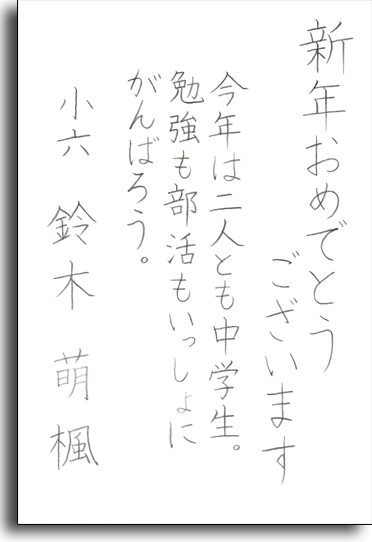 新年おめでとう
ございます
今年は二人とも中学生。
勉強も部活もいっしょに
がんばろう。
小六 鈴木 萌楓